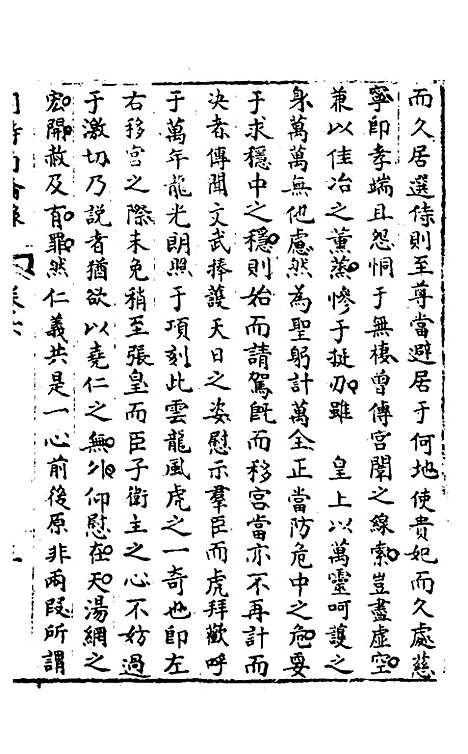 而久居選侍則至尊當避居于何地使貴妃而久處慈
寧即孝端且怨恫于無棲曾傳宮闈之線索豈盡虛空
兼以佳冶之薰蒸慘于挺刃雖　皇上以萬靈呵護之
身萬萬無他慮然為聖躬計萬全正當防危中之危要
于求穩中之穩則始而請駕旣而移宮當亦不再計而
決者傳聞文武捧護天日之姿慰示羣臣而虎拜歡呼
于萬年龍光朗照于項刻此雲龍風虎之一奇也即左
右移宮之際未免稍至張皇而臣子衛主之心不妨過
于激切乃說者猶欲以堯仁之無外仰慰在天湯網之
宏開赦及有罪然仁義共是一心前後原非兩段所謂